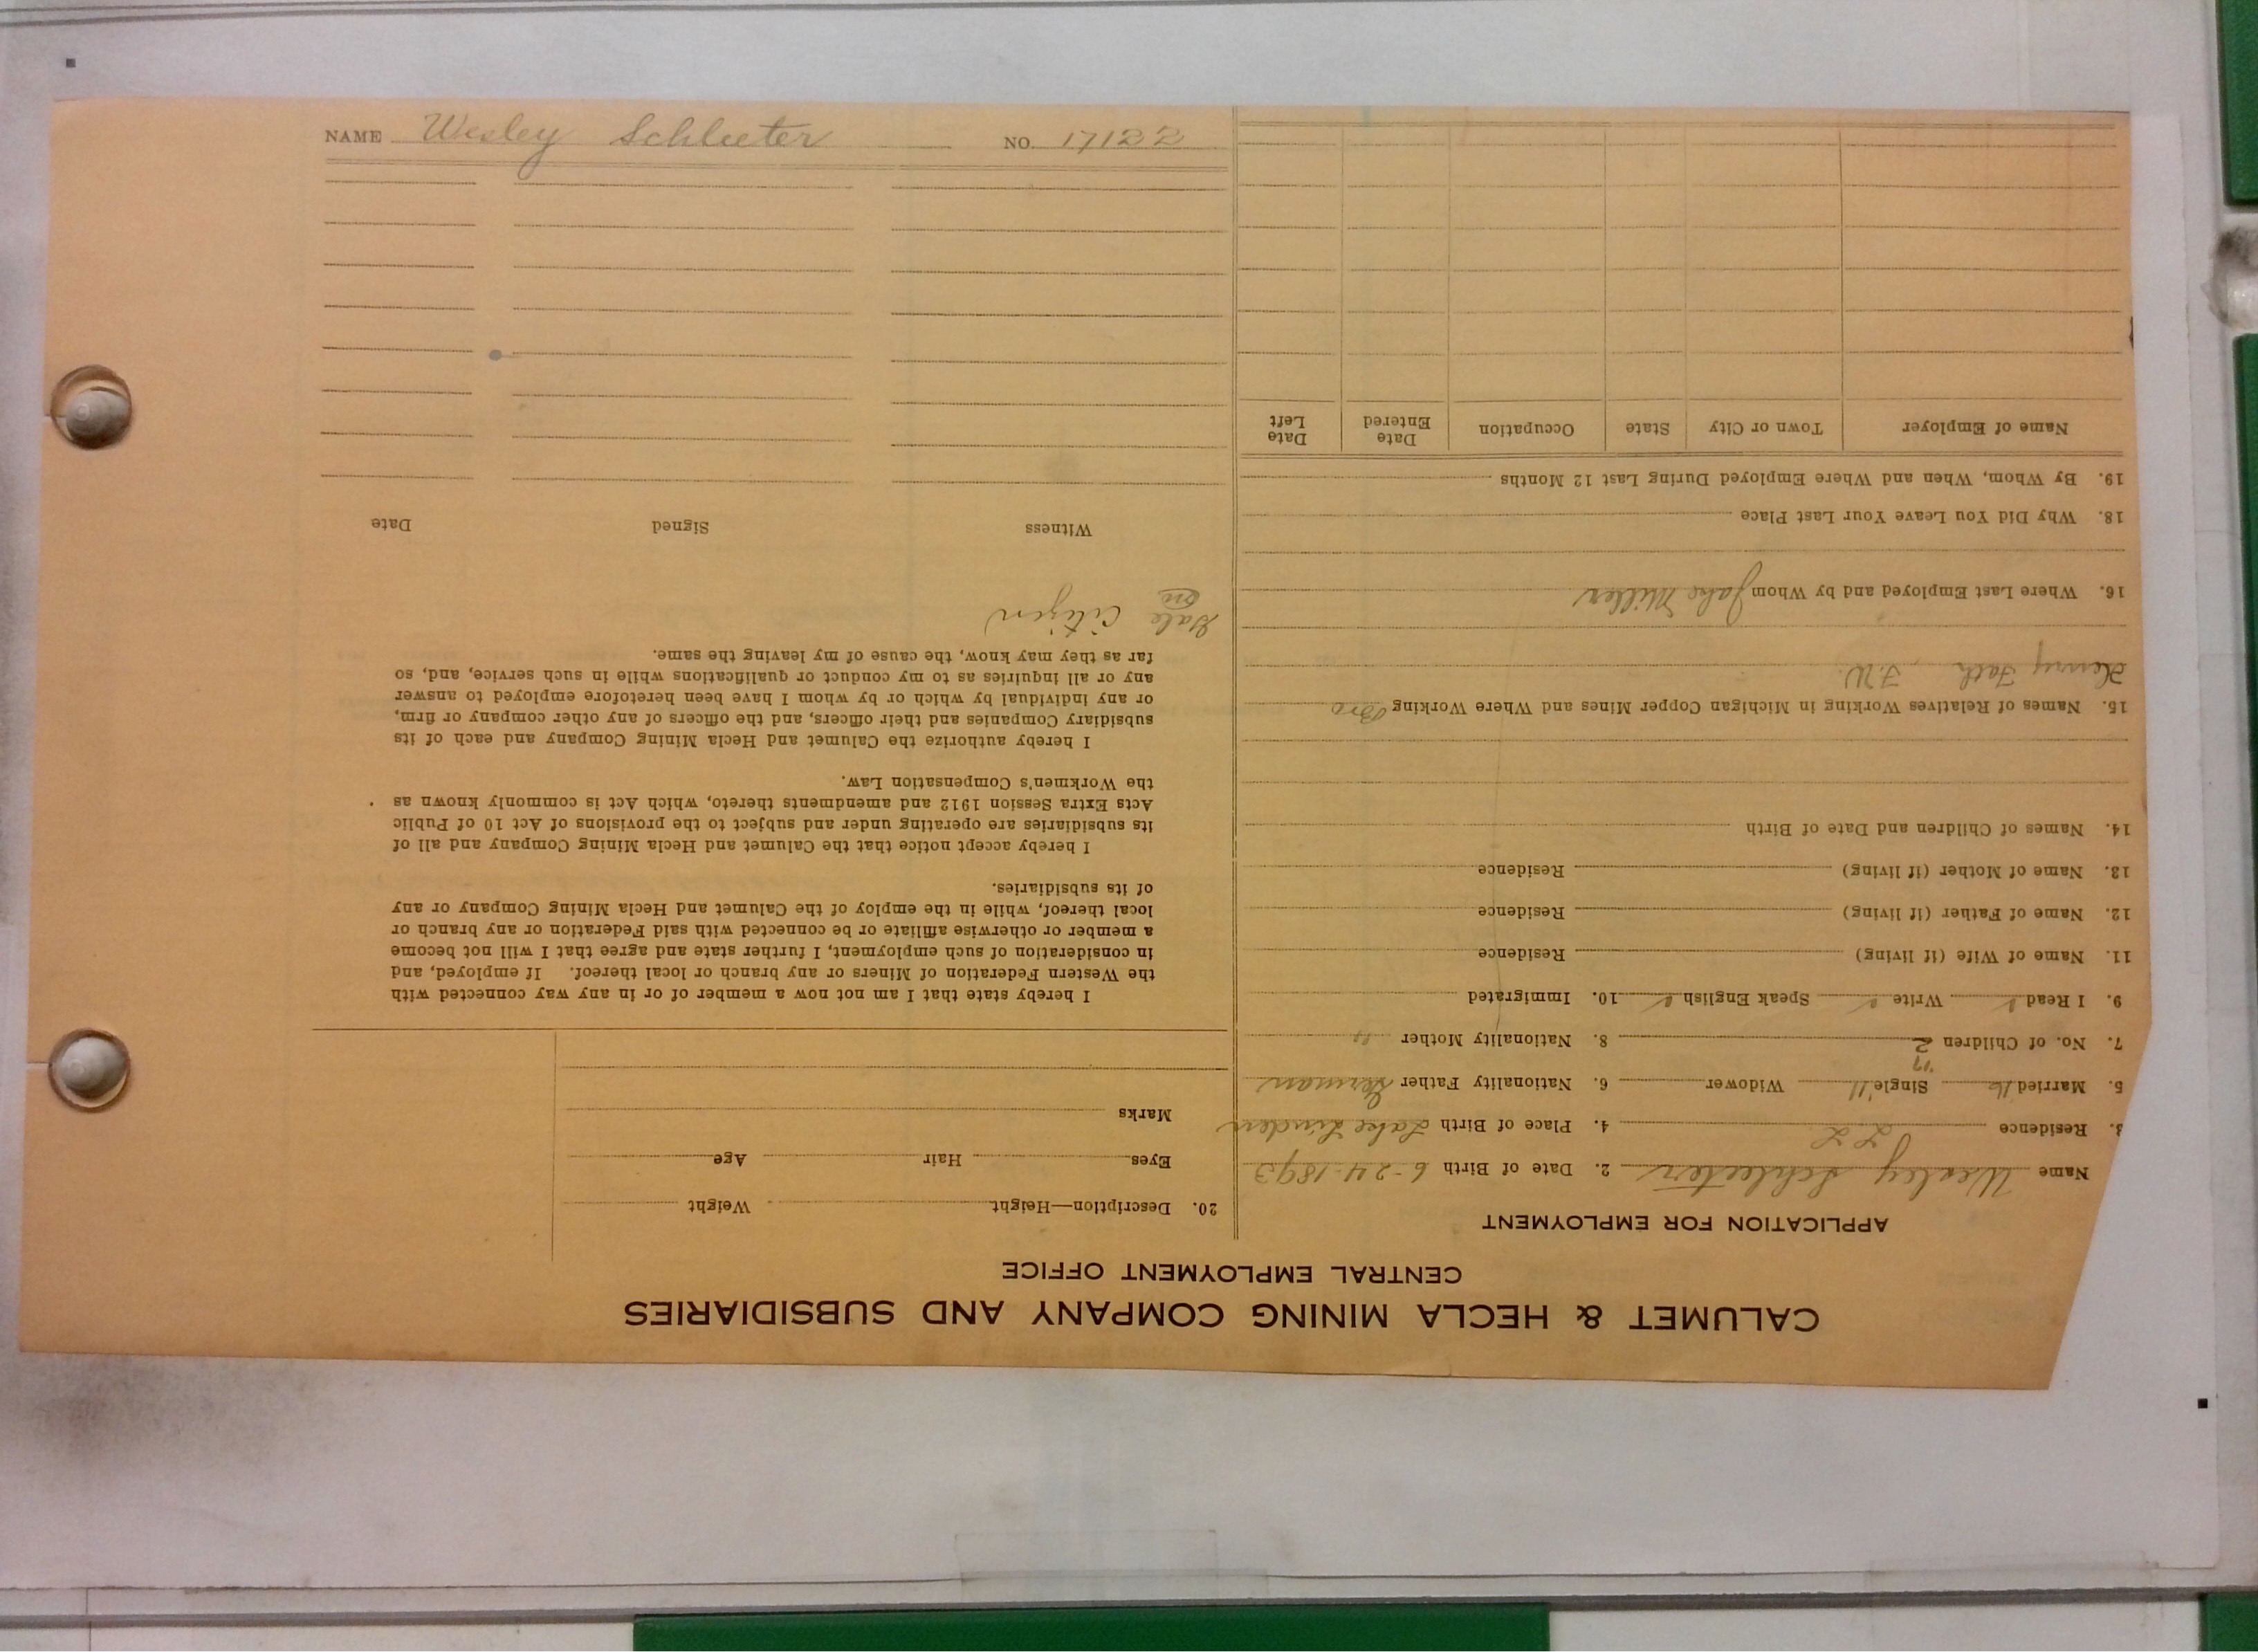 NAME Wesley Schlueter NO. 17122
CALUMET & HECLA MINING COMPANY AND SUBSIDIARIES
CENTRAL EMPLOYMENT OFFICE
APPLICATION FOR EMPLOYMENT
Name Wesley Schlueter 2. Date of Birth 6-24-1893
3. Residence L L 4. Place of Birth Lake Linden
5. Married Single Widower 6. Nationality Father German
7. No. of Children 2 8. Nationality Mother "
9. I Read Write Speak English 10. Immigrated
11. Name of Wife (if living) Residence
12. Name of Father (if living) Residence
13. Name of Mother (if living) Residence
14. Names of Children and Date of Birth
15. Names of Relatives Working in Michigan Copper Mines and Where Working Bro
Henry F.W.
16. Where Last Employed and by Whom Jake Miller
18. Why Did You Leave Your Last Place
19. By Whom, When and Where Employed During Last 12 Months
Name of Employer Town or City State Occupation Date Entered Date Left
20. Description—Height Weight
Eyes Hair Age
Marks
I hereby state that I am not now a member of or in any way connected with
the Western Federation of Miners or any branch or local thereof. If employed, and
in consideration of such employment, I further state and agree that I will not become
a member or otherwise affiliate or be connected with said Federation or any branch or
local thereof, while in the employ of the Calumet and Hecla Mining Company or any
of its subsidiaries.
I hereby accept notice that the Calumet and Hecla Mining Company and all of
its subsidiaries are operating under and subject to the provisions of Act 10 of Public
Acts Extra Session 1912 and amendments thereto, which Act is commonly known as
the Workmen's Compensation Law.
I hereby authorize the Calumet and Hecla Mining Company and each of its
subsidiary Companies and their officers, and the officers of any other company or firm,
or any individual by which or by whom I have been heretofore employed to answer
any or all inquiries as to my conduct or qualifications while in such service, and, so
far as they may know, the cause of my leaving the same.
Citizen
Witness Signed Date